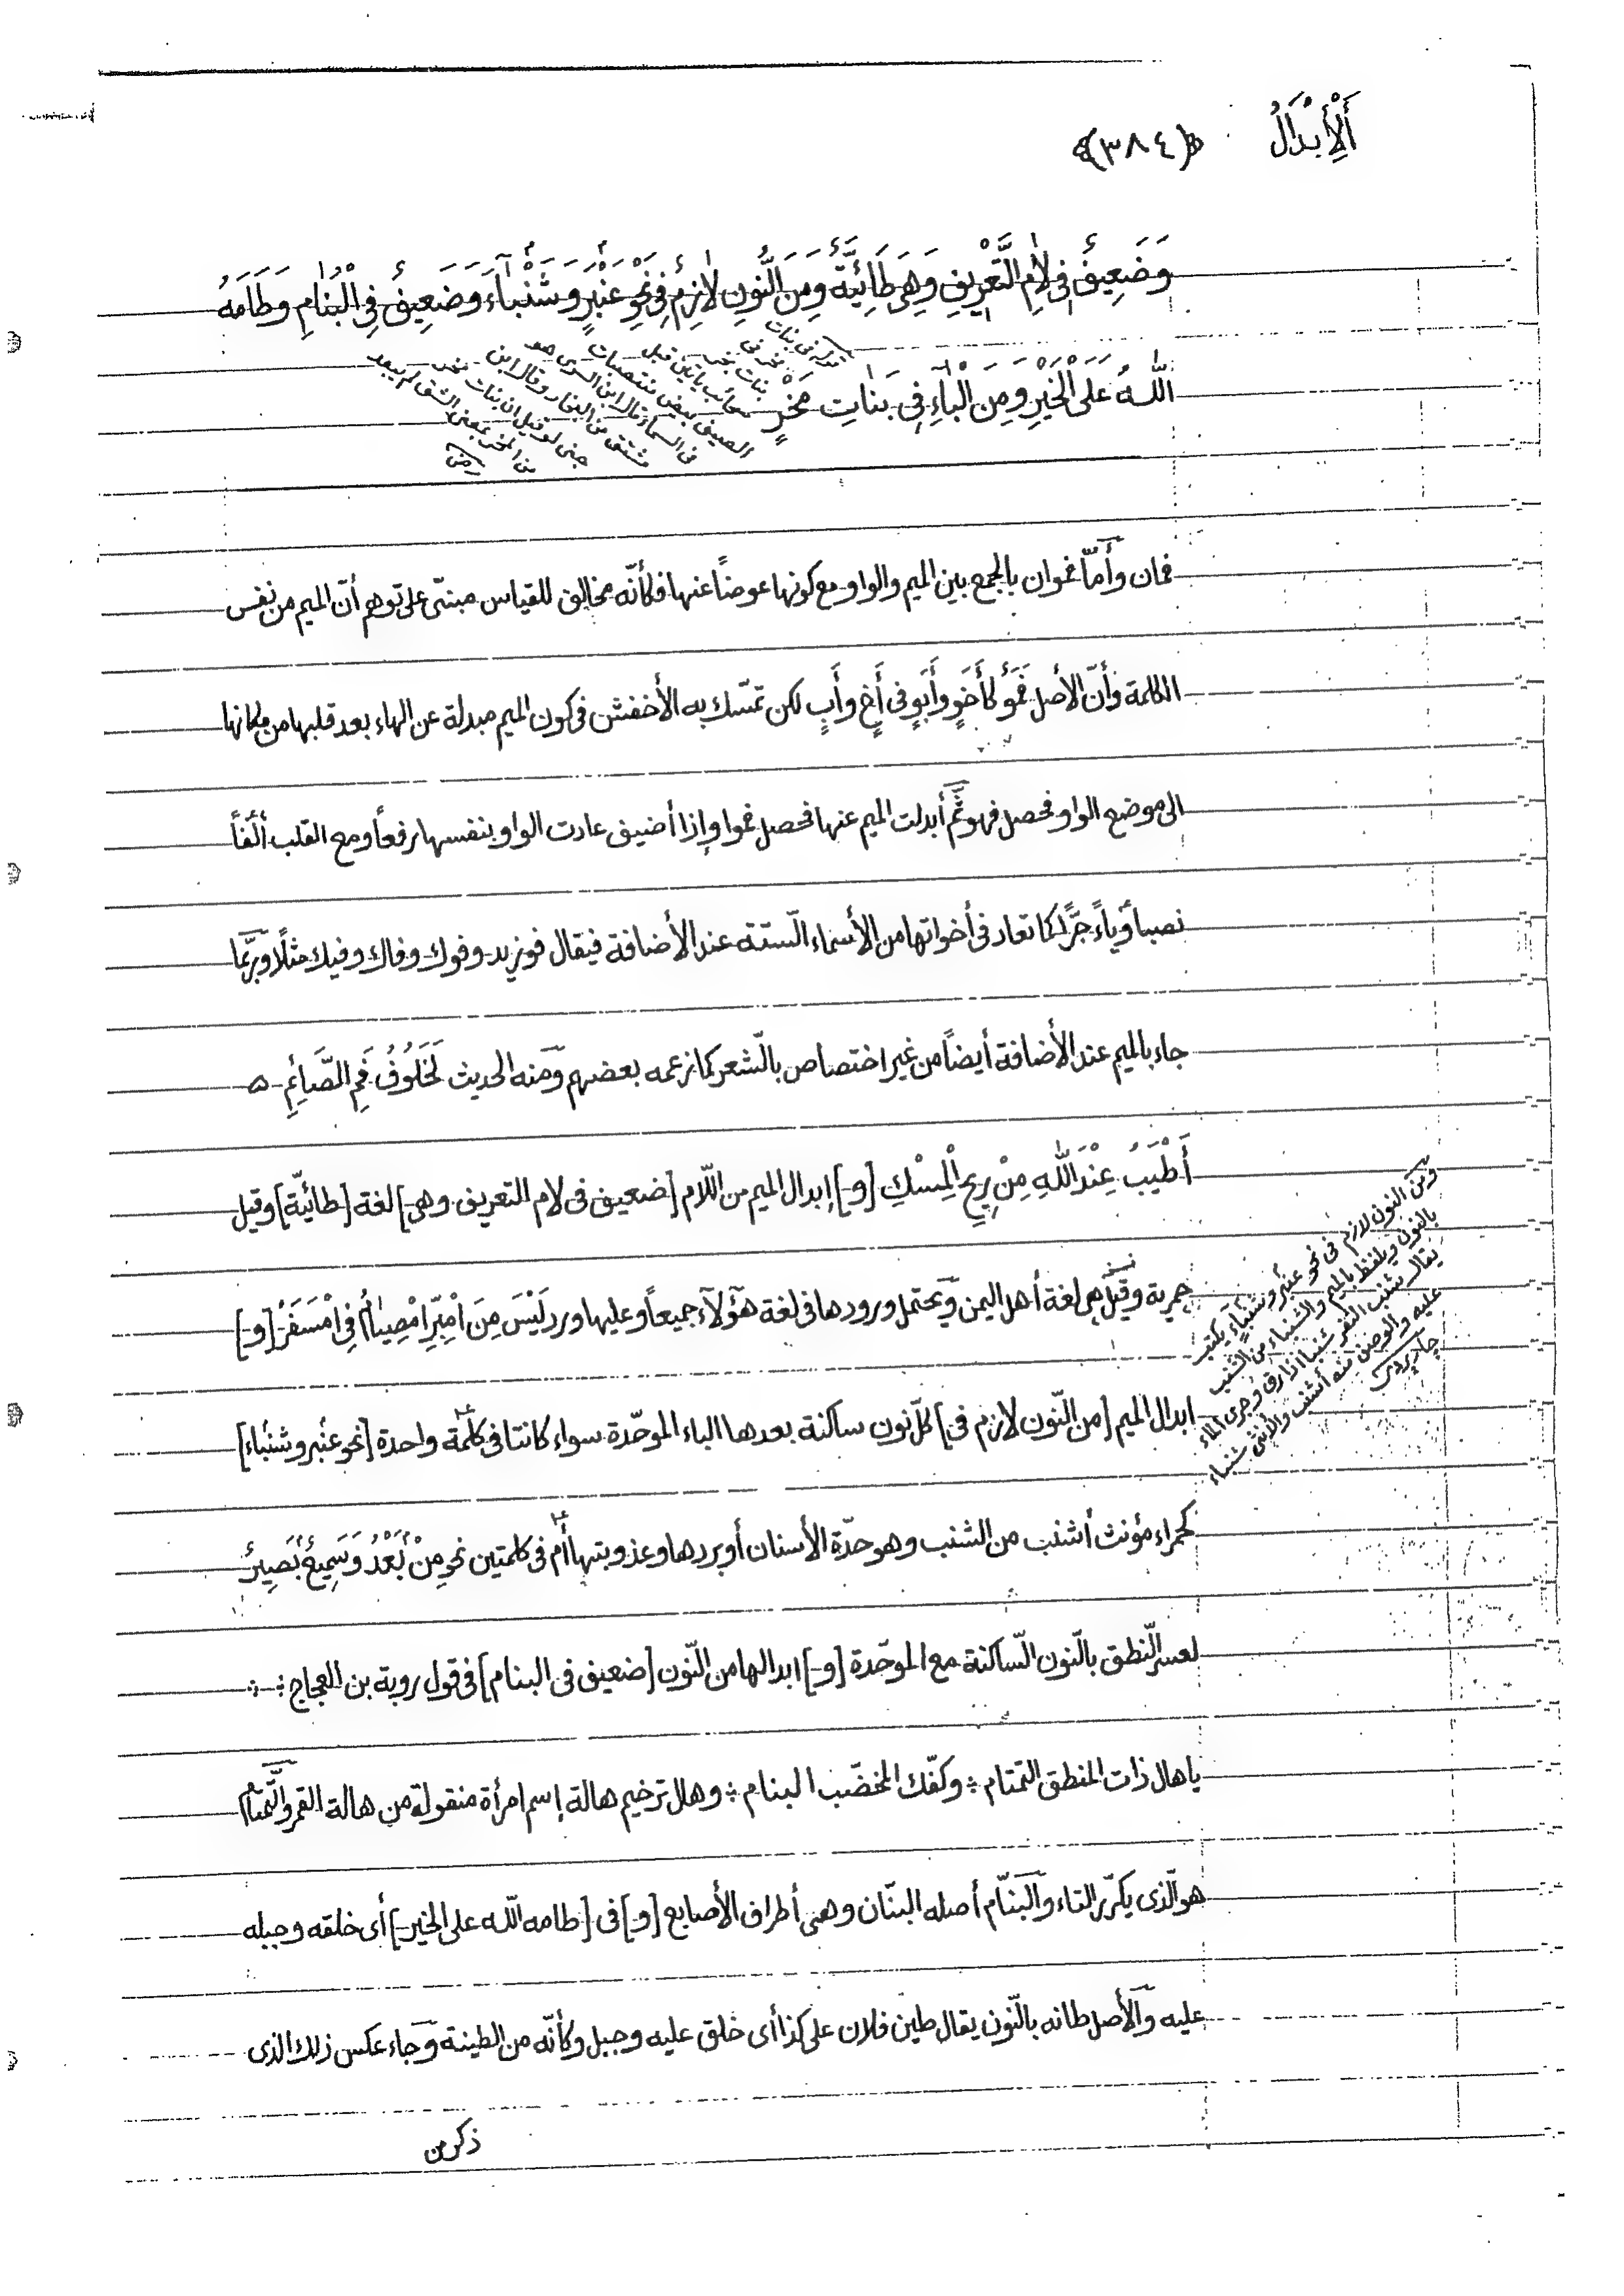 أَلْإِبْدَالُ ﴿(٣٨٤)﴾
وَضَعِيفٌ فِى لاٰمِ التَّعْرِيفِ وَهِىَ طَائِيَّةٌ وَمِنَ النُّونِ لاٰزِمٌ فِى نَحْوِ عَنْبَرٍ وَشَنْبَآءَ وَضَعِيفٌ فِى الْبَنٰامِ وَطَامَهُ
اللّٰهُ عَلَى الْخَيْرِ وَمِنَ الْبٰآءِ فِى بَنٰاتِ مَخْرٍ
بنات مخر
سحائب يأتين قبل
الصيف بيض منتصبات
فى السماء قال ابن السرى هو
مشتق من البخار وقال ابن
جنى لو قيل ان بنات مخر
من المخر بمعنى الشق لم يبعد
رضى
فمان وأمّا فموان بالجمع بين الميم والواو مع كونها عوضاً عنها فكأنّه مخالف للقياس مبنىّ على توهم أنّ الميم من نفس
الكلمة وأنّ الأصل فَمَوٌ كأَخَوٍ وأَبَوٍ فى أَخٍ وأَبٍ لكن تمّسك به الأخفش فى كون الميم مبدلة عن الهاء بعد قلبها من مكانها
الى موضع الواو فحصل فمهو ثمّ أبدلت الميم عنها فحصل فموا وإذا أضيف عادت الواو بنفسها رفعاً ومع القلب ألفاً
نصباً وياءً جرًّا كما تعاد فى أخواتها من الأسماء الّستة عند الأضافة فيقال فوزيد وفوك وفاك وفيك مثلًا وربّما
جاء بالميم عند الأضافة أيضاً من غير اختصاص بالّشعر كما زعمه بعضهم ومنه الحديث لَخَلُوفُ فَمِ الصَّائِمِ
أَطْيَبُ عِنْدَ اللّٰهِ مِنْ رِيحِ الْمِسْكِ [و] إبدال الميم من اللّام [ضعيف فى لام التعريف وهى] لغة [طائيّة] وقيل
حميرية وقيل هى لغة أهل اليمن ويحتمل ورودها فى لغة هؤلآء جميعاً وعليها ورد لَيْسَ مِنَ امْبِرِّ امْصِيٰامُ فِى امْسَفَرْ [و]
ابدال الميم [من النّون لازم فى] كلّ نون ساكنة بعدها الباء الموحّدة سواء كانتا فى كلمة واحدة [نحو عنبر وشنباء]
كحمراء مؤنث أشنب من الشنب وهو حدّة الأسنان أو بردها وعذوبتها أم فى كلمتين نحو مِنْ بَعْدُ وَسَمِيعٌ بَصِيرٌ
لعسر النّطق بالنّون السّاكنة مع الموحّدة [و] ابدالها من النّون [ضعيف فى البنام] فى قول روبة بن العجاج ؞
ياهال ذات المنطق التمتام ؞ وكفّك المخضّب البنام ؞ وهال ترخيم هالة إسم امرأة منقولة من هالة القمر والتّمتام
هو الّذى يكرّر التاء والبنّام أصله البنّان وهى أطراف الأصابع [و] فى [طامه اللّه على الخير] أى خلقه وجبله
عليه والأصل طانه بالنّون يقال طين فلان على كذا أى خلق عليه وجبل وكأنّه من الطينة وجاء عكس ذلك الذى
ذكر من
ومن النون لازم فى نحو عنبر وشنباء يكتب
بالنون ويلفظ بالميم والشنباء من الشنب
يقال شنب الثغر شنبا اذا رق وجرى الماء
عليه والوصف منه أشنب والأنثى شنباء
جاربردى